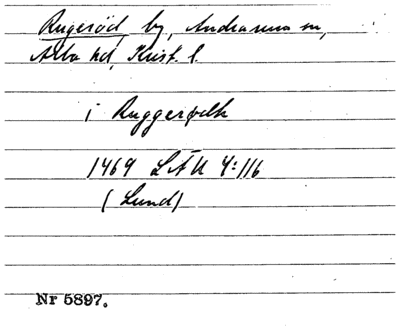 Rugeröd by, Andrarum sn,
Albo hd, Krist. l.
i Ruggerødh
1469 LÄU 4:116
(Lund)
Nr 5897.